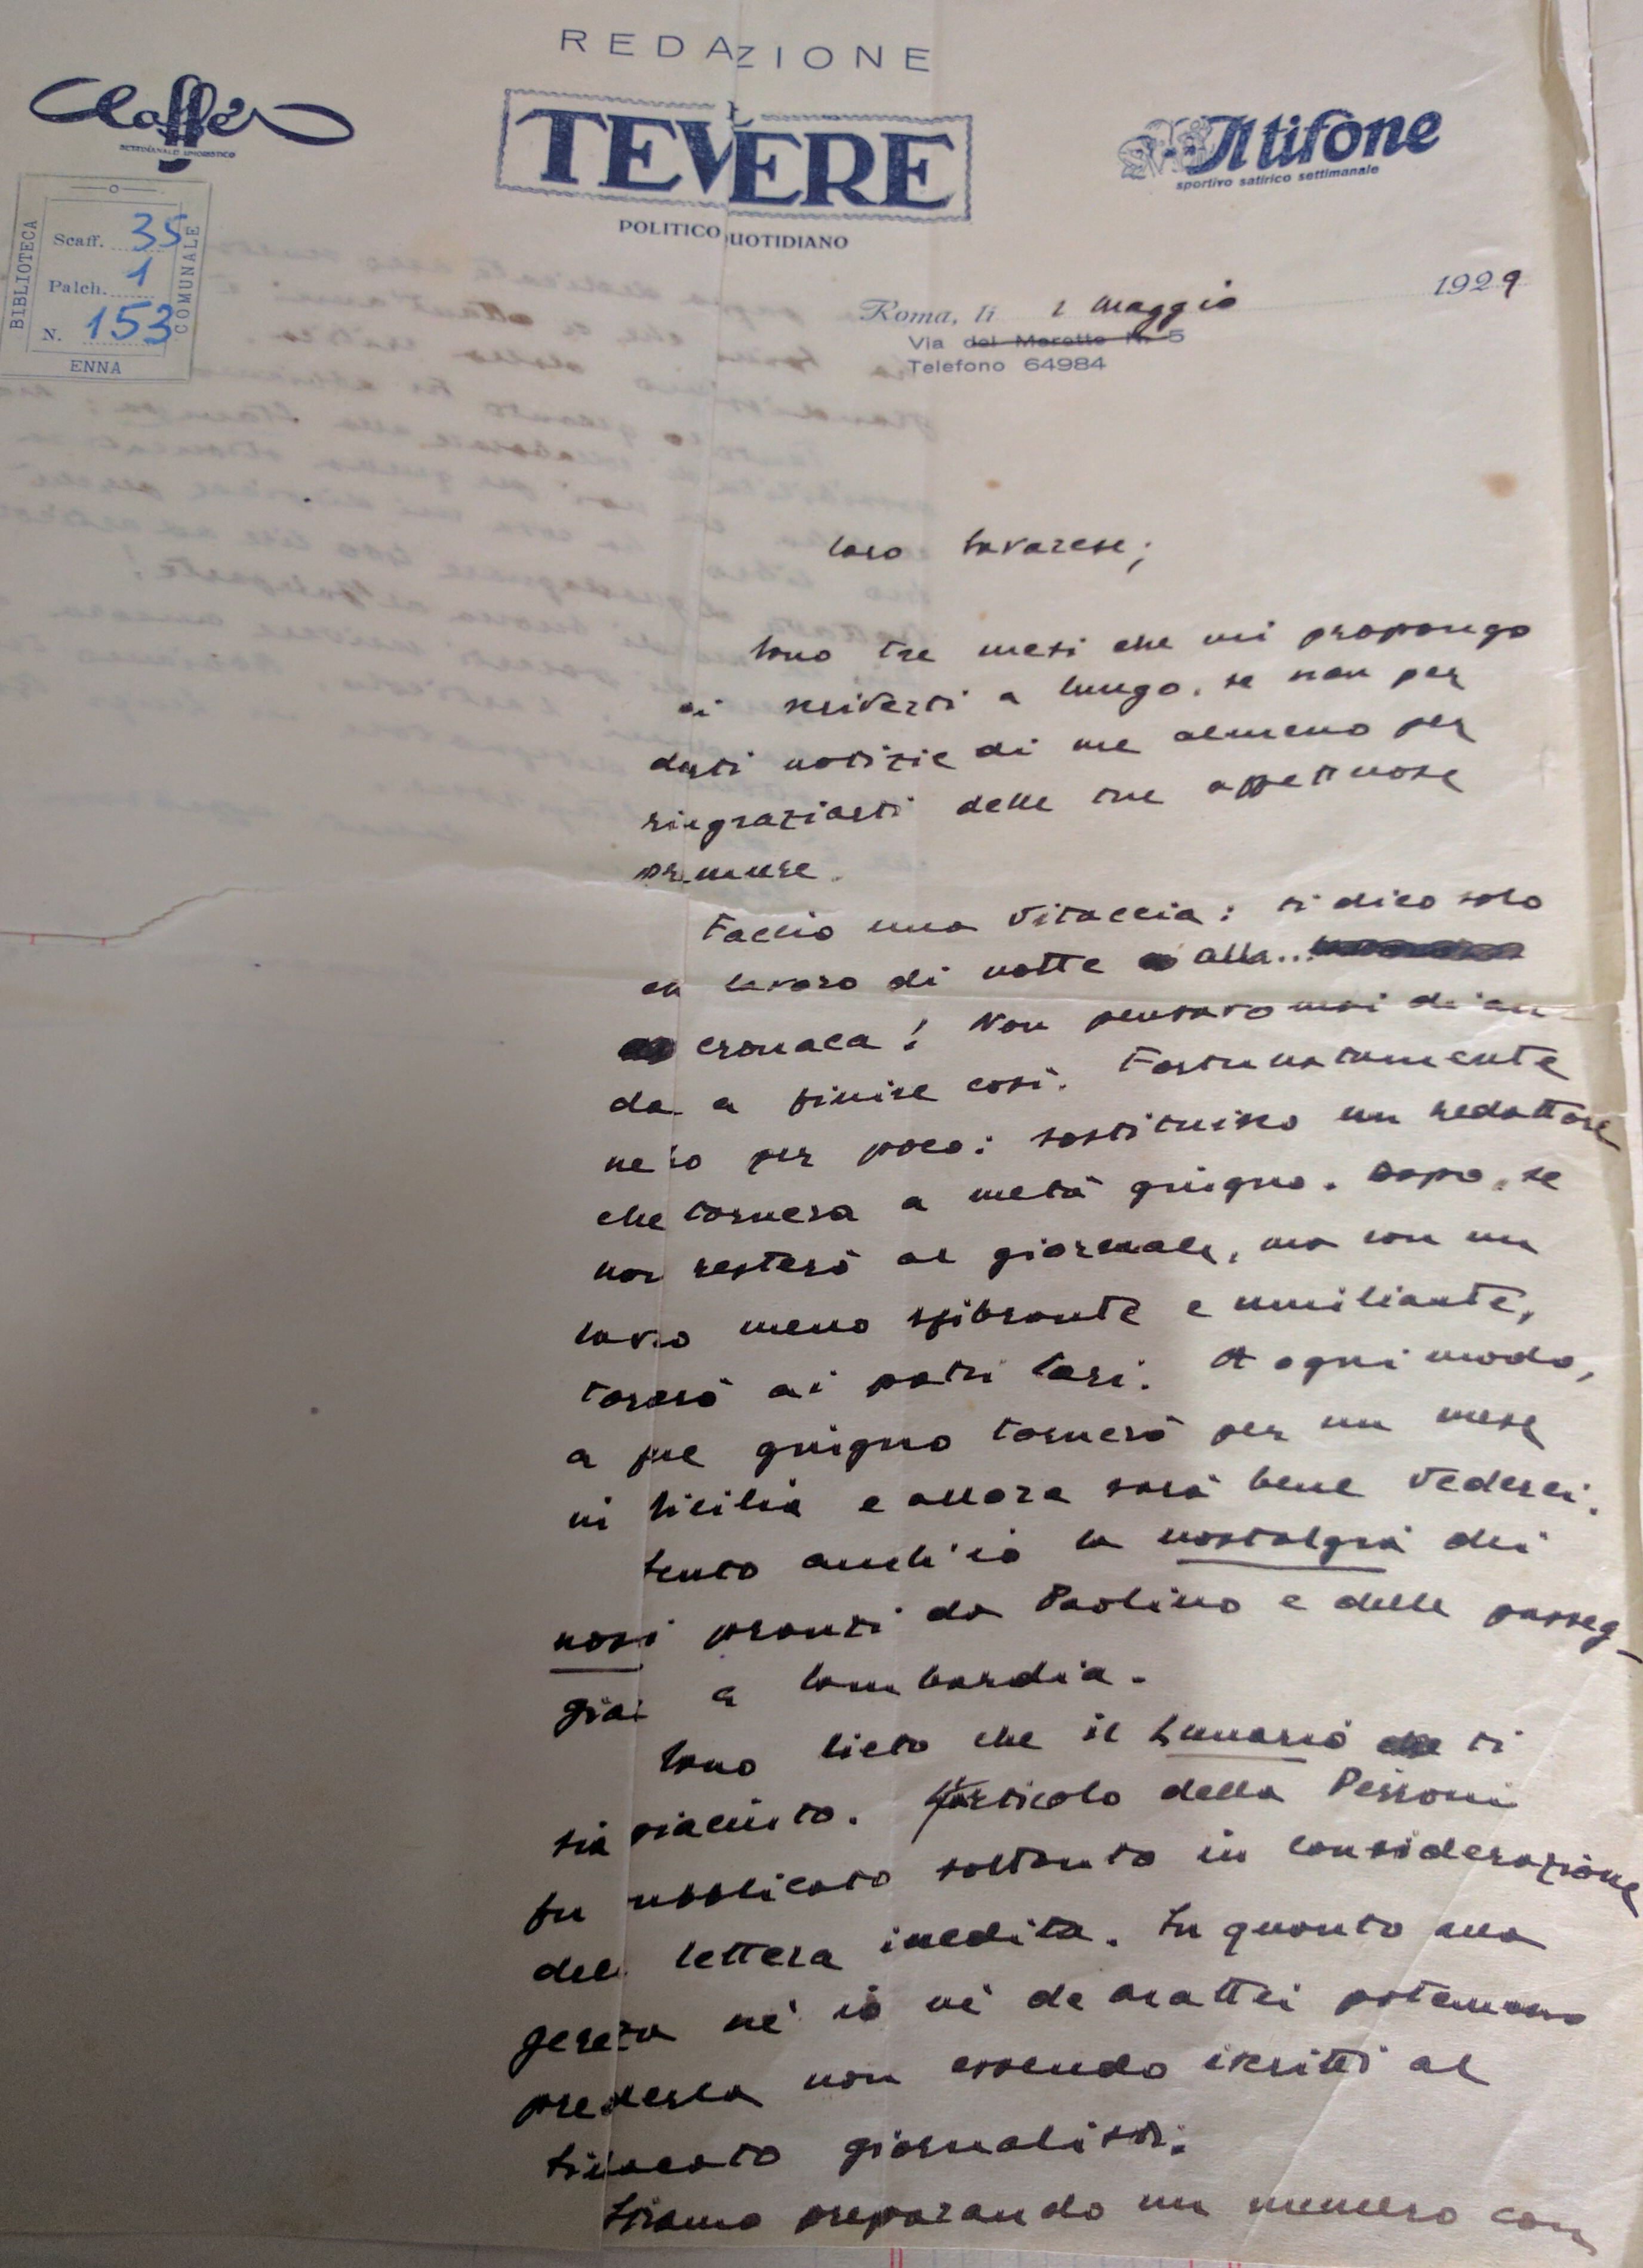 REDAZIONE
Caffè
SETTIMANALE UMORISTICO
TEVERE
POLITICO QUOTIDIANO
Il tifone
sportivo satirico settimanale
BIBLIOTECA
COMUNALE
Scaff. 35
Palch. 1
N. 153
ENNA
Roma, li 2 maggio 1929
Via del Moretto N. 5
Telefono 64984
Caro Savarese;
Sono tre mesi che mi propongo
di scriverti a lungo, se non per
darti notizie di me almeno per
ringraziarti delle tue affettuose
premure.
Faccio una vitaccia: ti dico solo
che lavoro di notte alla...
cronaca! Non pensavo mai di an-
da a finire così. Fortunatamente
per poco: sostituisco un redattore
che tornerà a metà giugno. Dopo, se
non resterò al giornale, ma con un
lavoro meno sfibrante e umiliante,
tornerò ai patri lari. A ogni modo,
a fine giugno tornerò per un mese
in Sicilia e allora sarà bene vederci.
Sento anch'io la nostalgia dei
nosti pranzi da Paolino e delle passeg-
giate a Lombardia.
Sono lieto che il Lunario ti
sia piaciuto. L'articolo della Pezzoni
fu pubblicato soltanto in considerazione
della lettera inedita. In quanto alla
né io né De Mattei potemmo
prenderla non essendo iscritti al
sindacato giornalisti.
Stiamo preparando un numero con